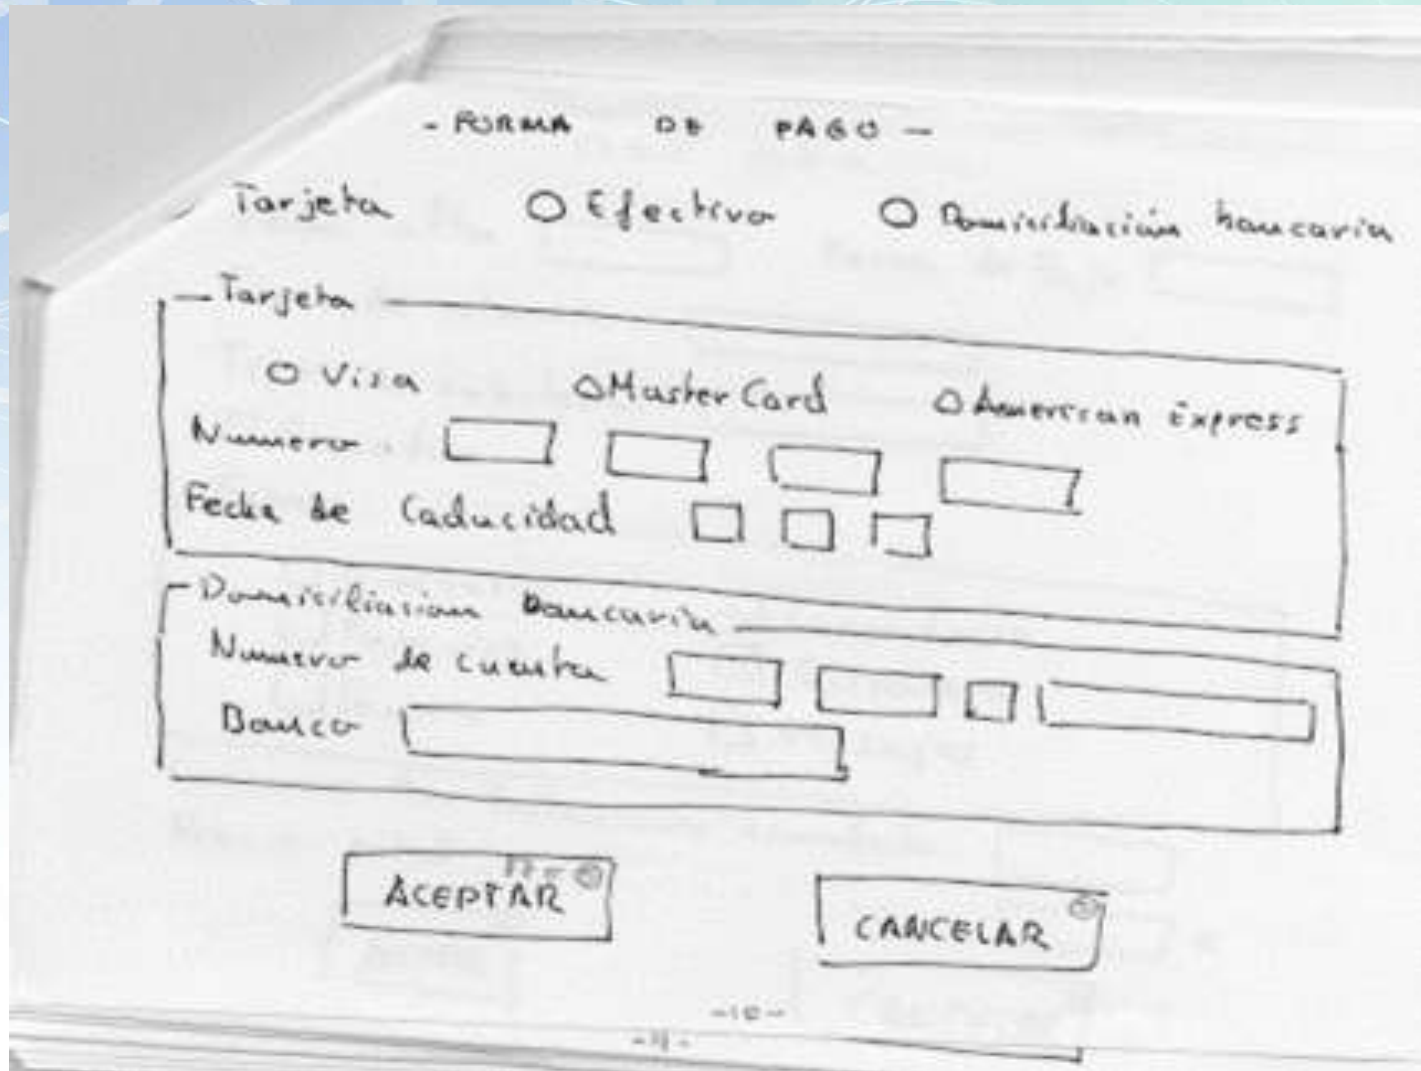 - FORMA DE PAGO -
Tarjeta O Efectivo O Domiciliación bancaria
Tarjeta
O Visa O Master Card O American Express
Numero
Fecha de Caducidad
Domiciliacion Bancaria
Numero de cuenta
Banco
ACEPTAR
CANCELAR
-10-
-11-